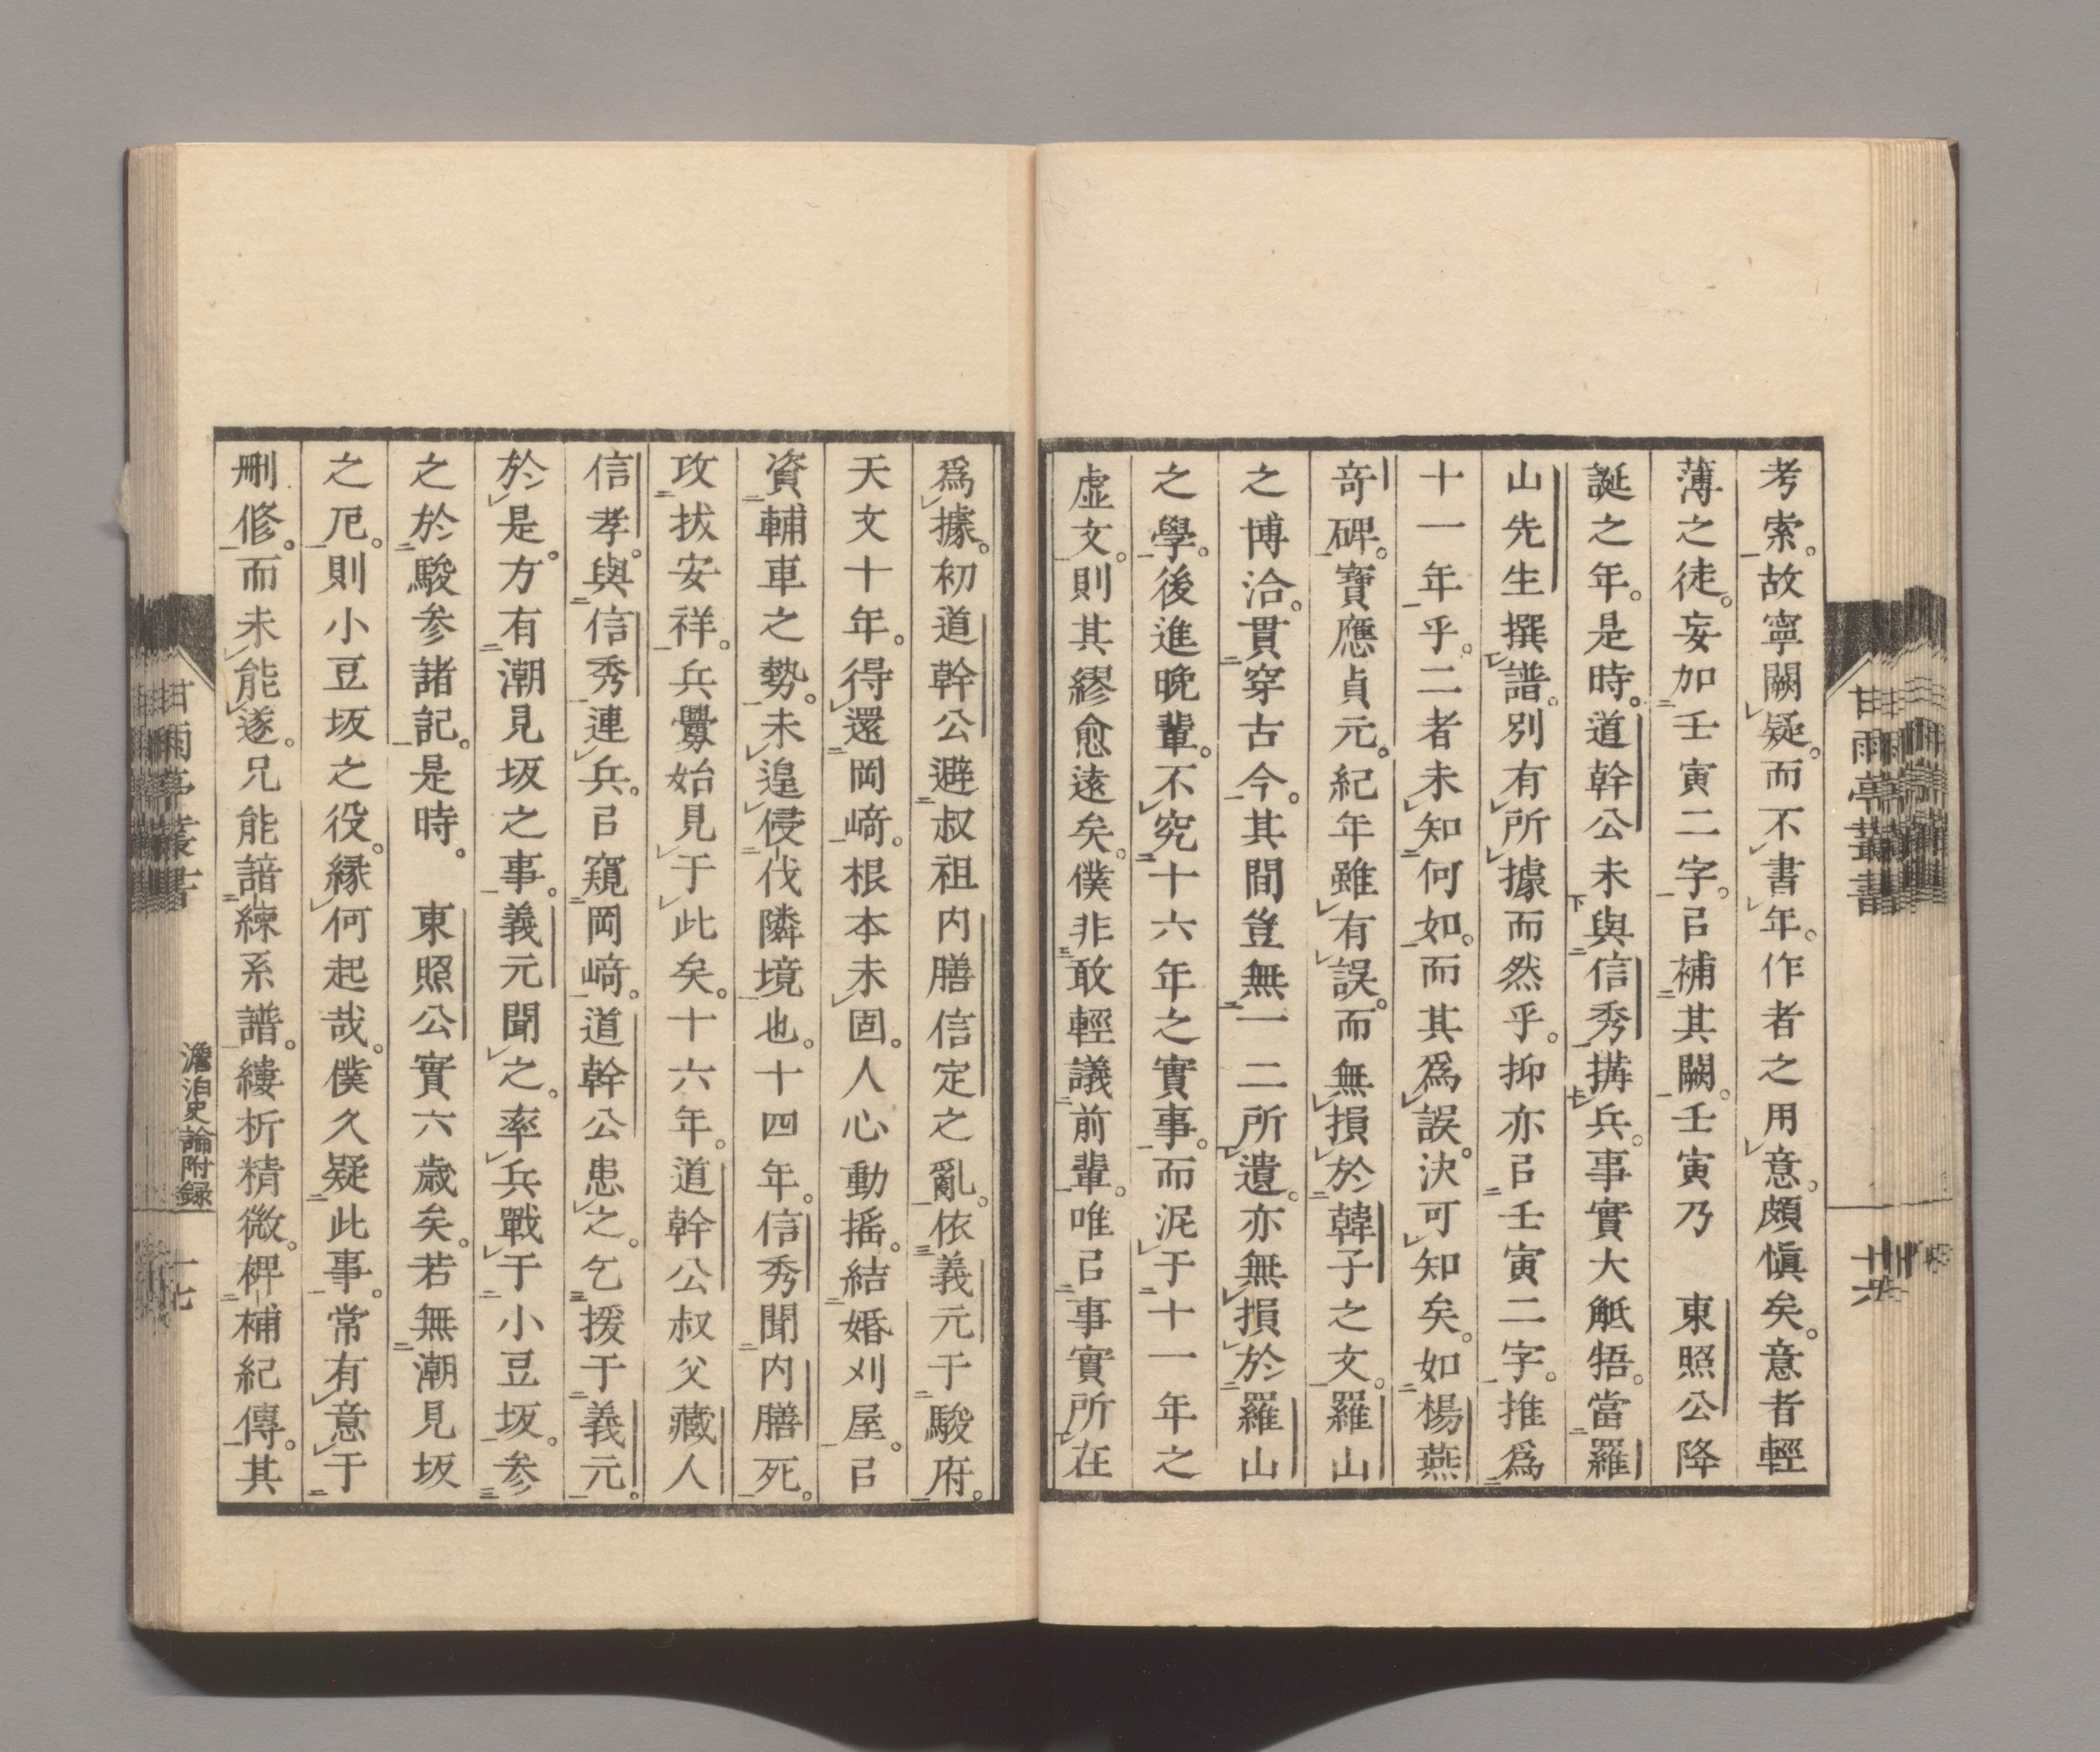 考索。故寧闕疑。而不書年。作者之用意。頗愼矣。意者輕
薄之徒。妄加壬寅二字。㠯補其闕。壬寅乃　東照公降
誕之年。是時。道幹公未與信秀搆兵。事實大觝牾。當羅
山先生撰譜。別有所據而然乎。抑亦㠯壬寅二字。推爲
十一年乎。二者未知何如。而其爲誤。決可知矣。如楊燕
奇碑。寶應貞元。紀年雖有誤。而無損於韓子之文。羅山
之博洽。貫穿古今。其間豈無一二所遺。亦無損於羅山
之學。後進晩輩。不究十六年之實事。而泥于十一年之
虛文。則其繆愈遠矣。僕非敢輕議前輩。唯㠯事實所在
爲據。初道幹公避叔祖内膳信定之亂。依義元于駿府。
天文十年。得還岡﨑。根本未固。人心動搖。結婚刈屋。㠯
資輔車之勢。未遑侵伐隣境也。十四年。信秀聞内膳死。
攻拔安祥。兵釁始見于此矣。十六年。道幹公叔父藏人
信孝。與信秀連兵。㠯窺岡﨑。道幹公患之。乞援于義元。
於是。方有潮見坂之事。義元聞之。率兵戰于小豆坂。參
之於駿參諸記。是時。　東照公實六歲矣。若無潮見坂
之厄。則小豆坂之役。緣何起哉。僕久疑此事。常有意于
刪修。而未能遂。兄能諳練系譜。縷析精微。裨補紀傳。其
甘雨亭叢書
十六
甘雨亭叢書
澹泊史論附録
十七